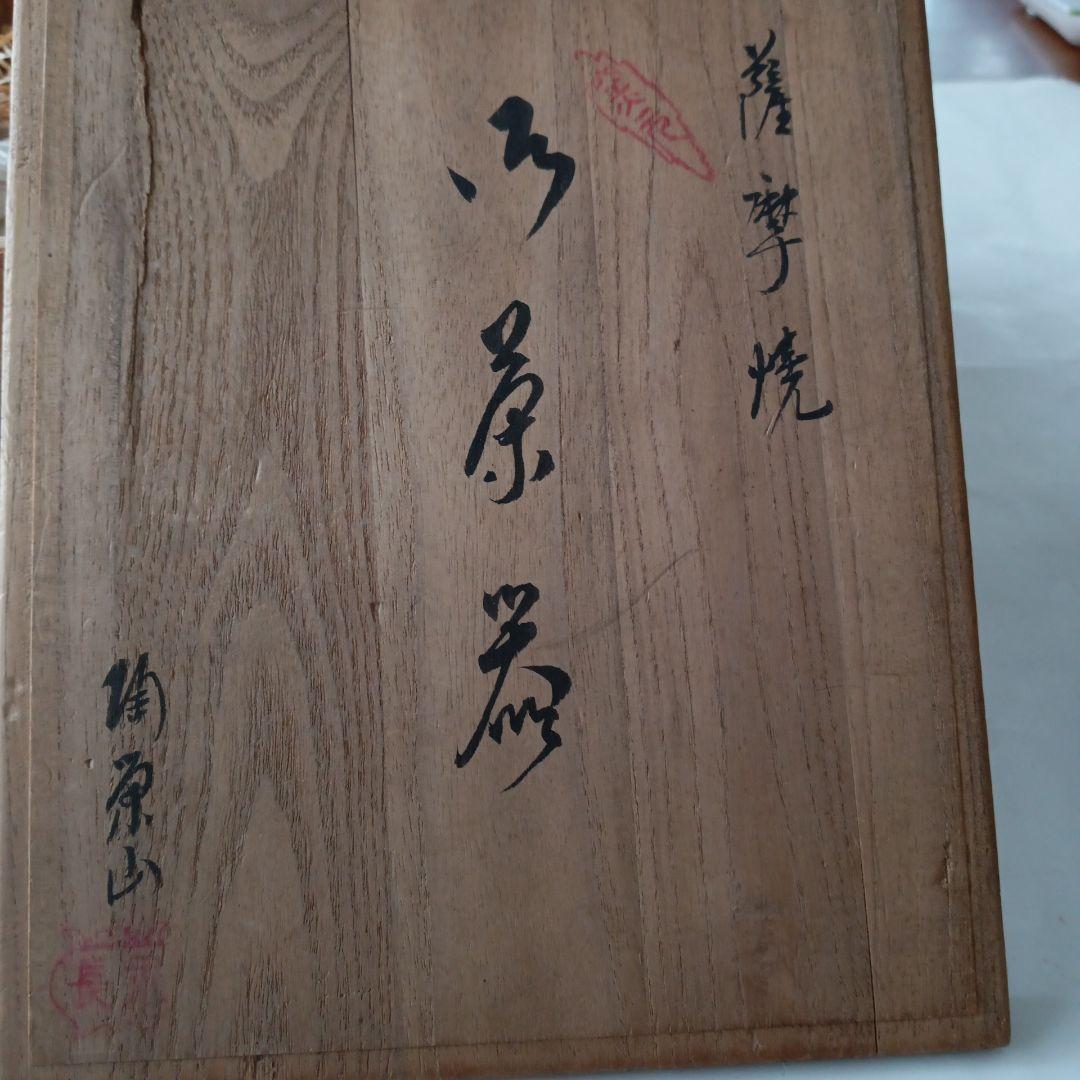 薩摩焼
御茶器
陶原山
長